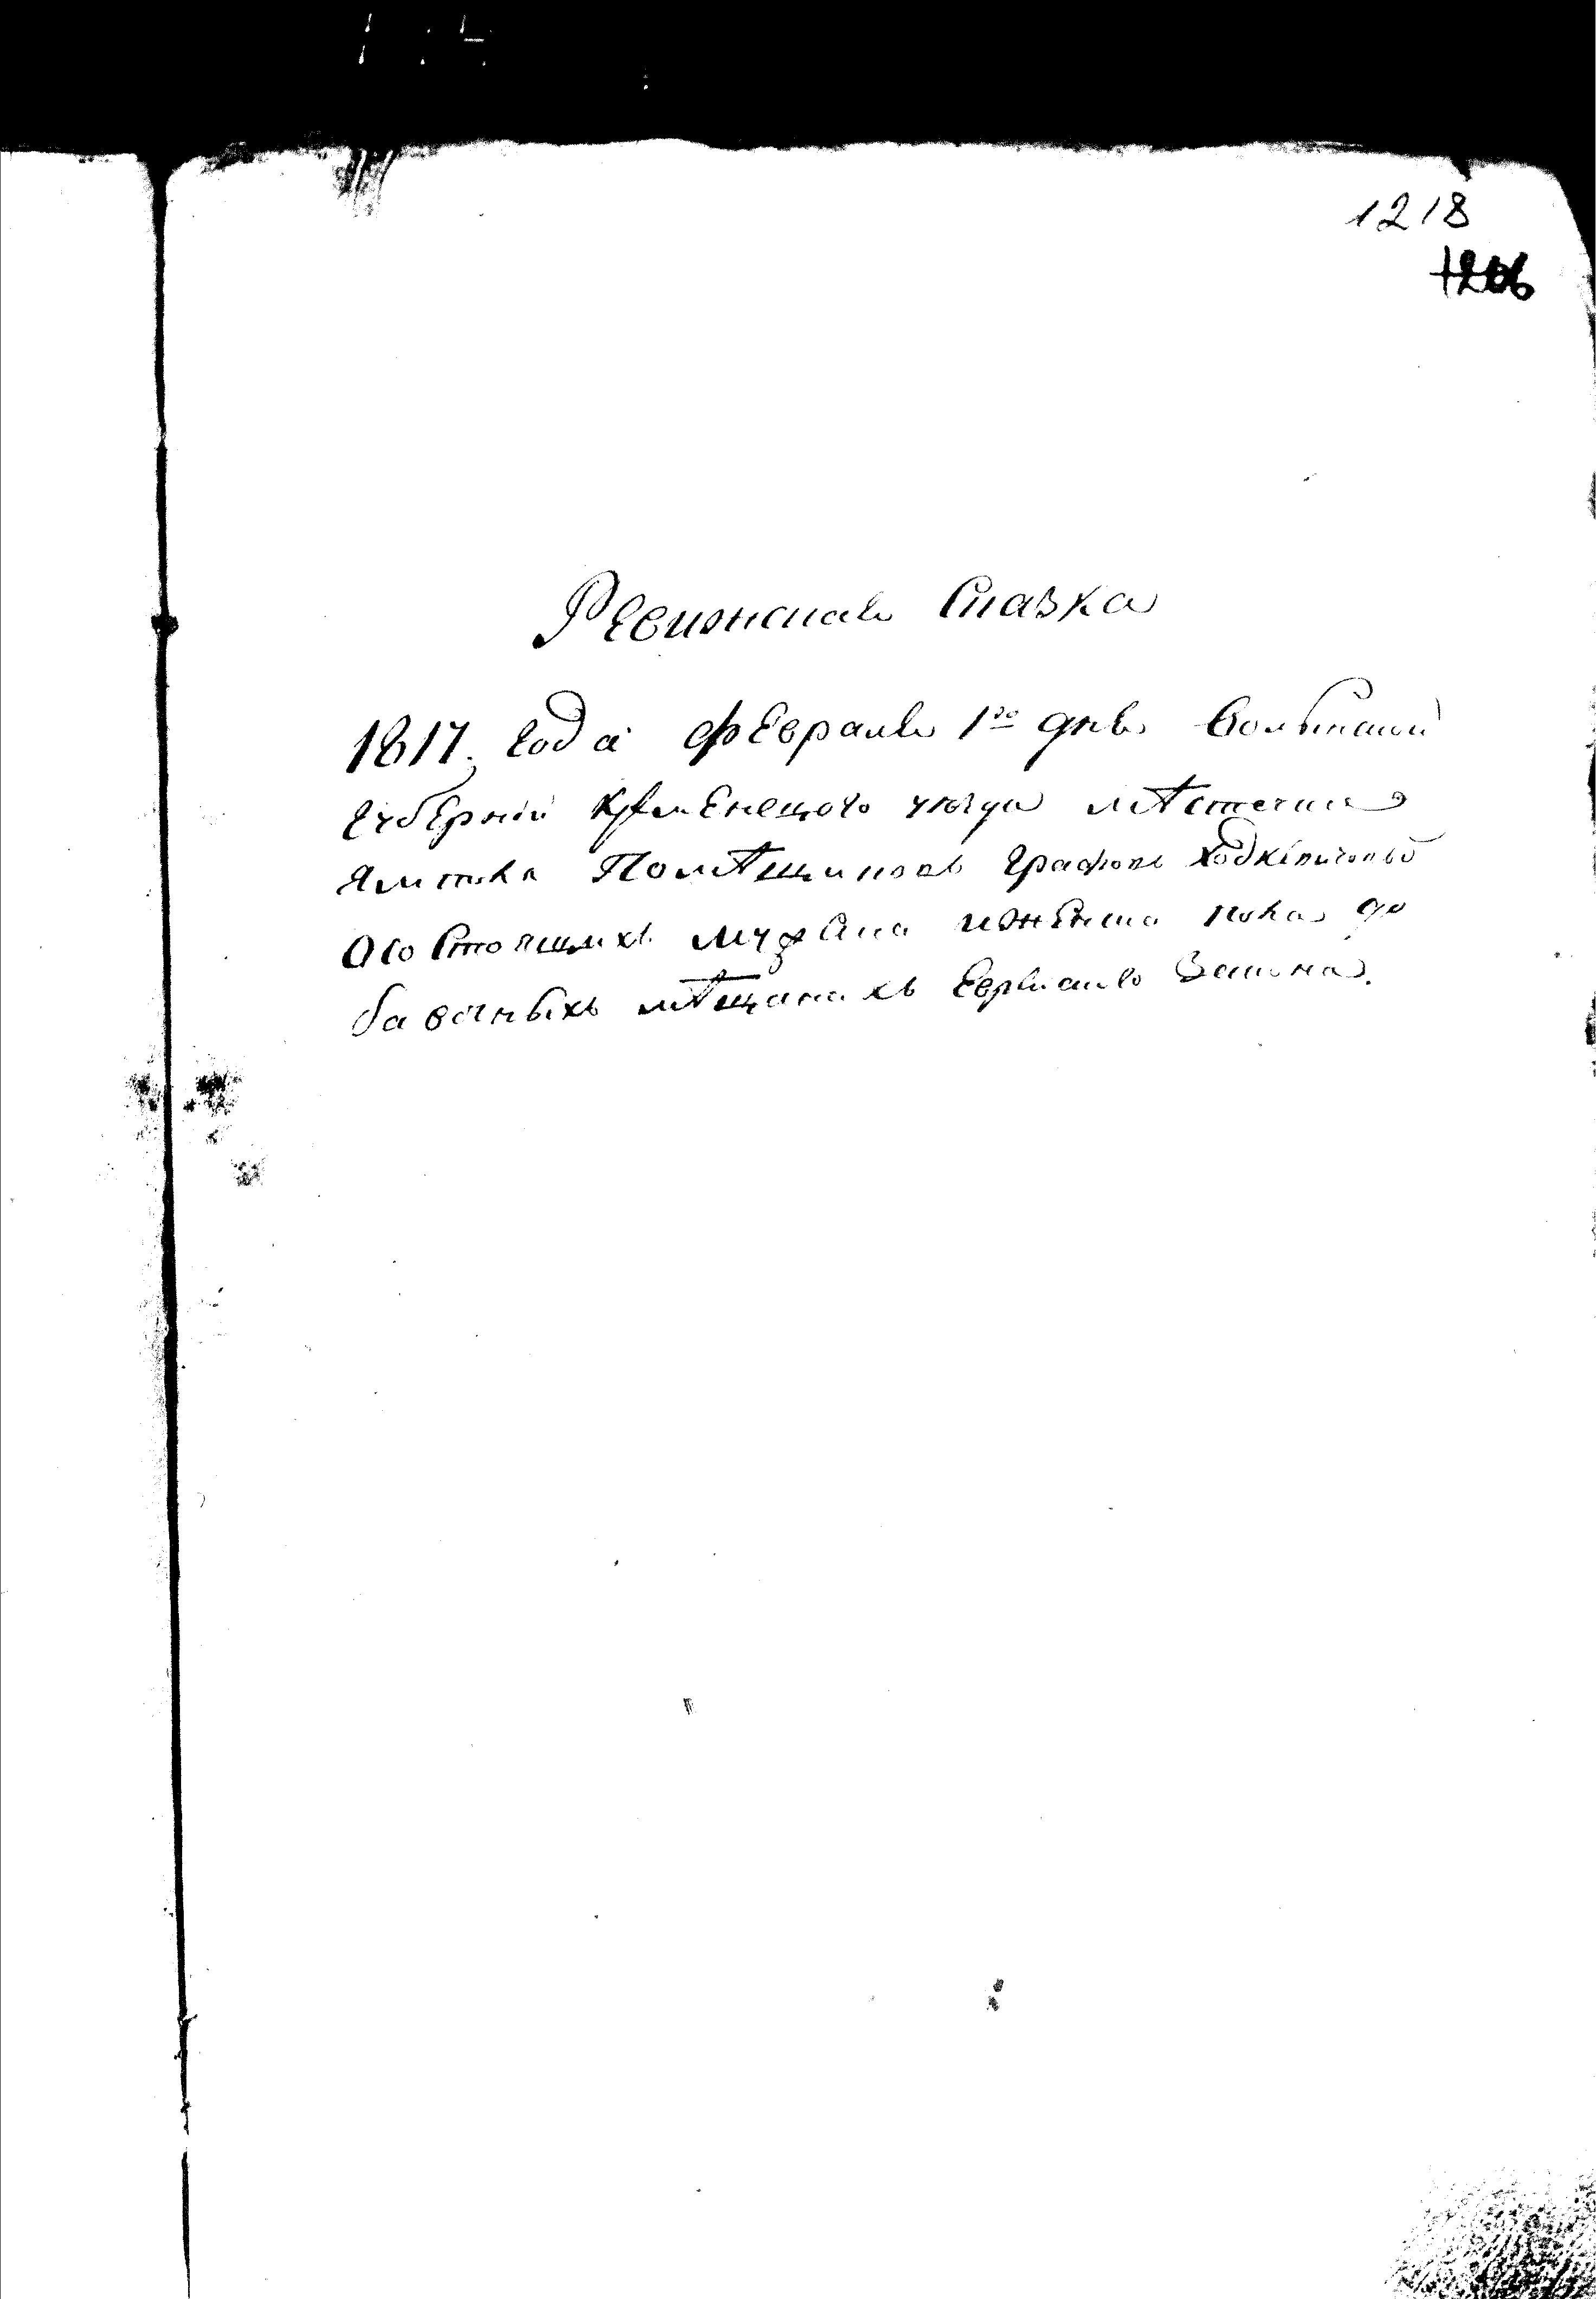 1218
1206
Ревижская Сказка
1817. года февраля 1го дня Волынской
Губернии Кременецкого уезда мѣстечка
Ямполя Помѣщиковъ Графовъ Ходкѣвичовъ
О состоящихъ мужеска и женска пола до
бавочныхъ мѣщанахъ Еврейского Закона.